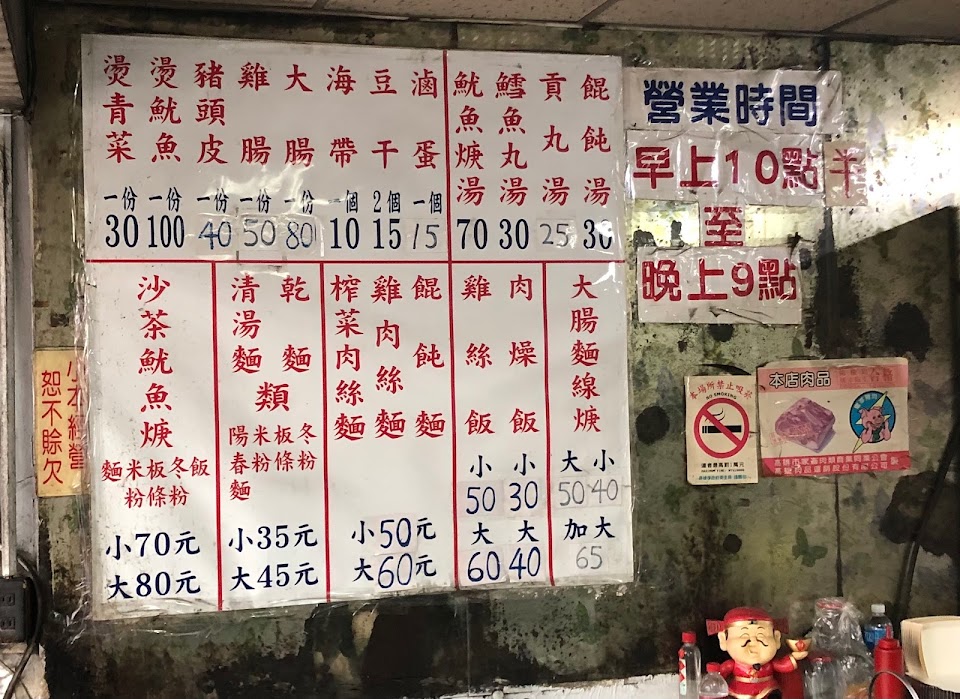 燙青菜 一份 30
燙魷魚 一份 100
豬頭皮 一份 40
雞腸 一份 50
大腸 一份 80
海帶 一個 10
豆干 2個 15
滷蛋 一個 15
魷魚焿湯 70
鱈魚丸湯 30
貢丸湯 25
餛飩湯 30
沙茶魷魚焿
麵 米粉 板條 冬粉 飯
小70元
大80元
清湯麵
乾麵
類
陽春麵 米粉 板條 冬粉
小35元
大45元
榨菜肉絲麵
雞肉絲麵
餛飩麵
小50元
大60元
雞絲飯
小50
大60
肉燥飯
小30
大40
大腸麵線焿
大50 小40
加大
65
營業時間
早上10點半
至
晚上9點
小本經營
恕不賒欠
本場所禁止吸菸
NO SMOKING
本店肉品